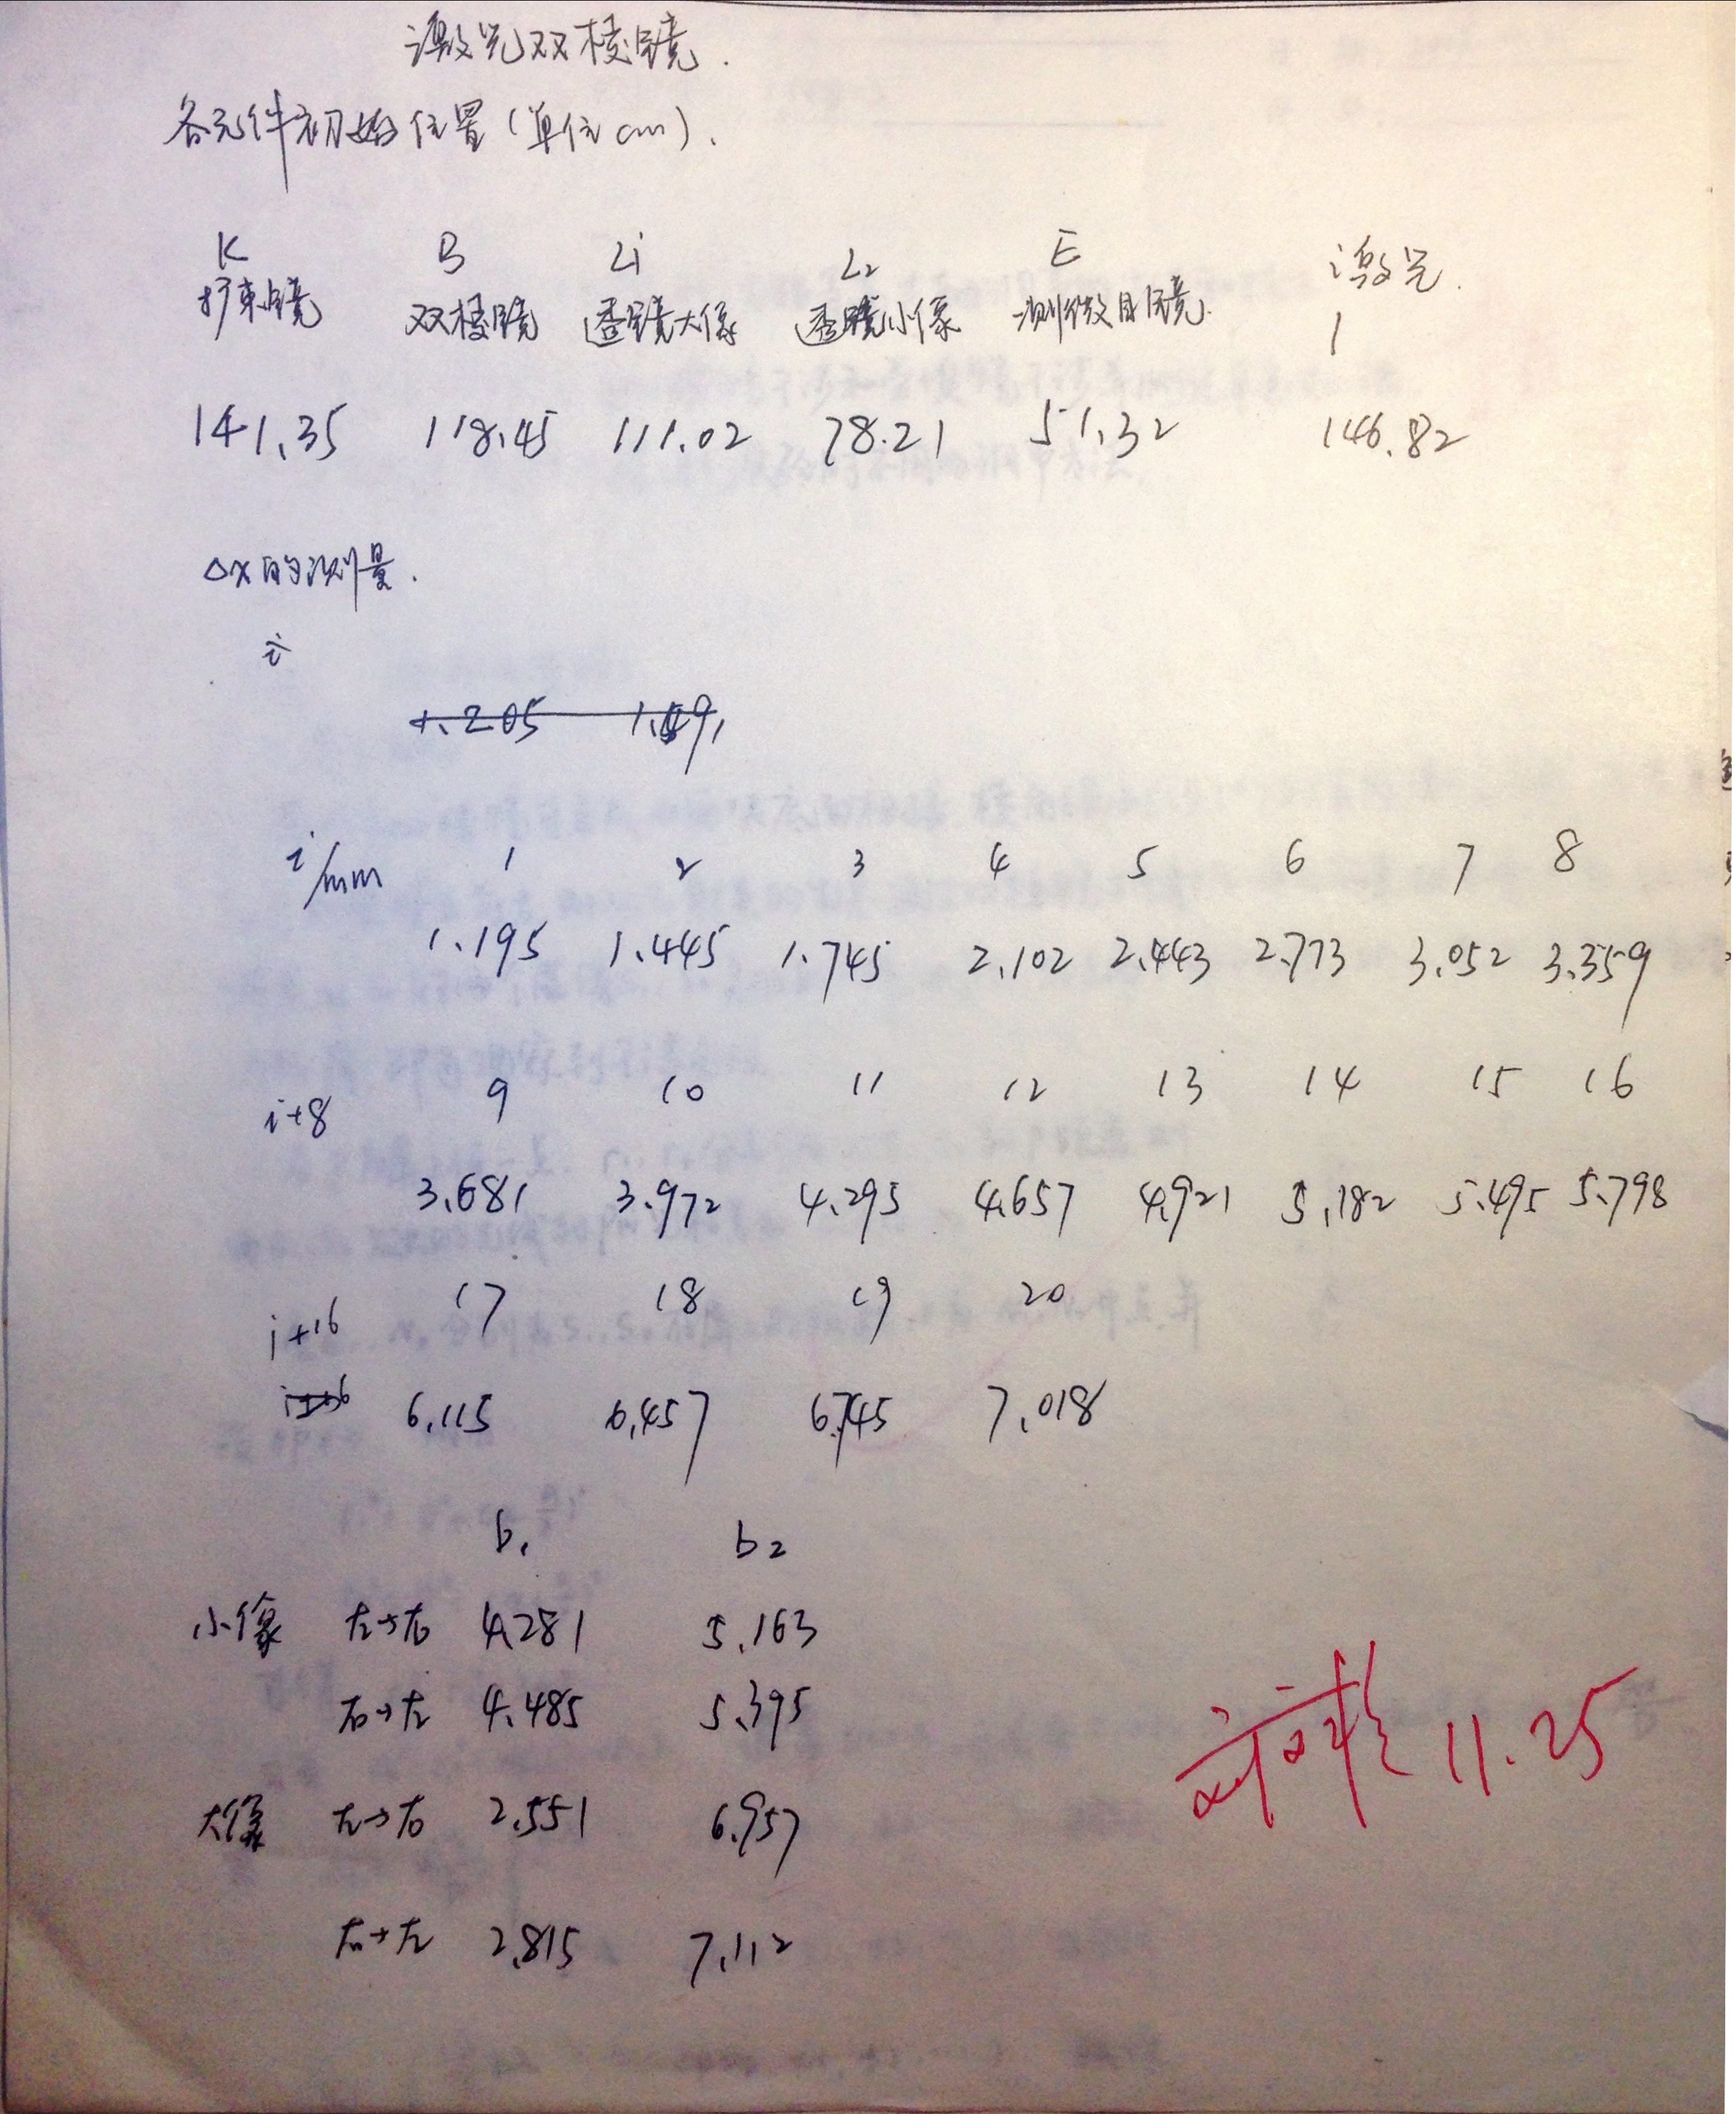 激光双棱镜.
各元件初始位置(单位cm).
K B L1 L2 E 激光.
扩束镜 双棱镜 透镜大像 透镜小像 测微目镜. 1
141.35 118.45 111.02 78.21 51.32 146.82
Δx的测量.
i
1.205
i/mm 1 2 3 4 5 6 7 8
1.195 1.445 1.745 2.102 2.443 2.773 3.052 3.359
i+8 9 10 11 12 13 14 15 16
3.681 3.972 4.295 4.657 4.921 5.182 5.495 5.798
i+16 17 18 19 20
6.115 6.457 6.745 7.018
b1 b2
小像 左→右 4.281 5.163
右→左 4.485 5.395
大像 左→右 2.551 6.957
右→左 2.815 7.112
11.25